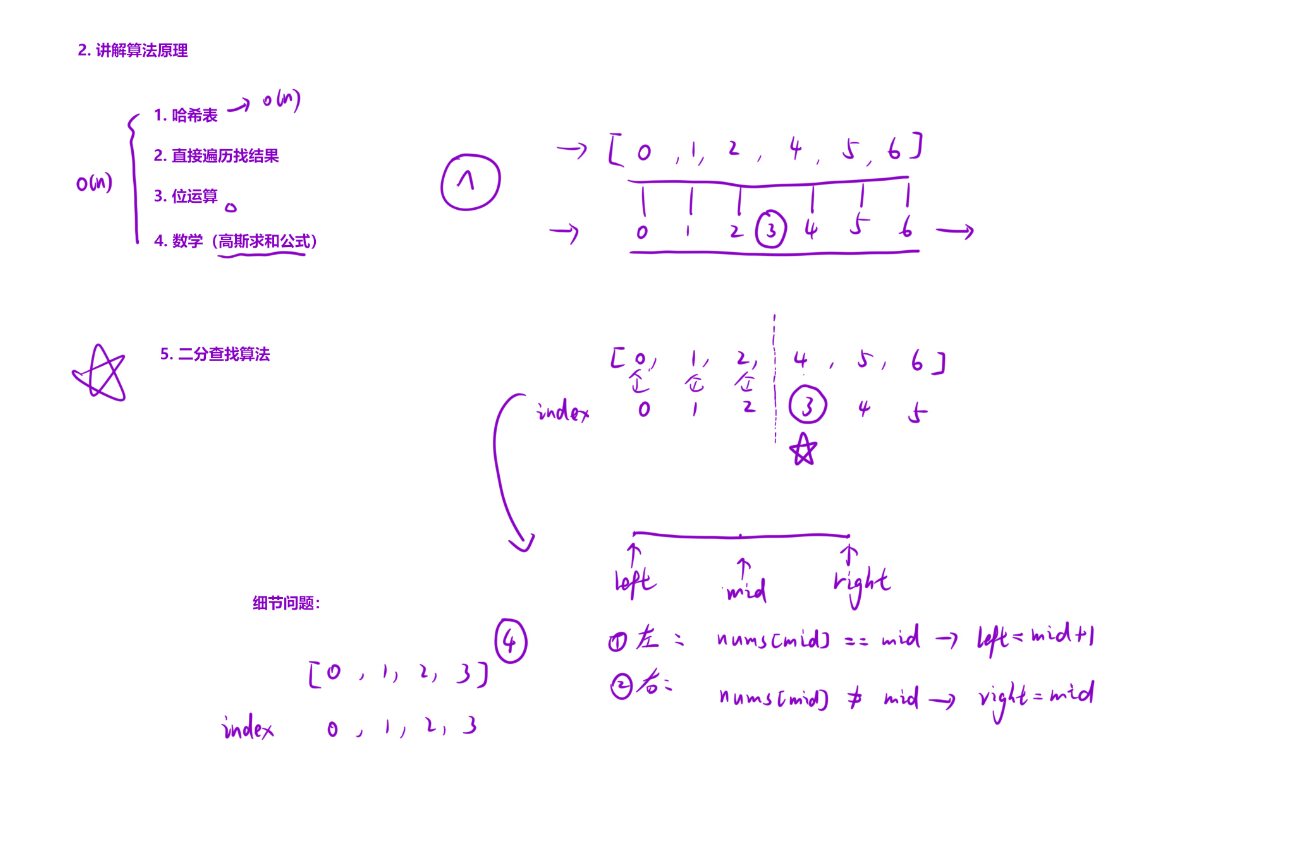 2. 讲解算法原理
1. 哈希表 → O(n)
2. 直接遍历找结果
O(n)
3. 位运算
4. 数学（高斯求和公式）
^
→ [ 0 , 1, 2 , 4 , 5 , 6 ]
→ 0 1 2 3 4 5 6 →
5. 二分查找算法
[ 0, 1, 2, 4 , 5 , 6 ]
index 0 1 2 3 4 5
left mid right
① 左： nums[mid] == mid → left = mid+1
② 右： nums[mid] ≠ mid → right = mid
细节问题：
[ 0 , 1, 2, 3 ] 4
index 0 , 1, 2, 3